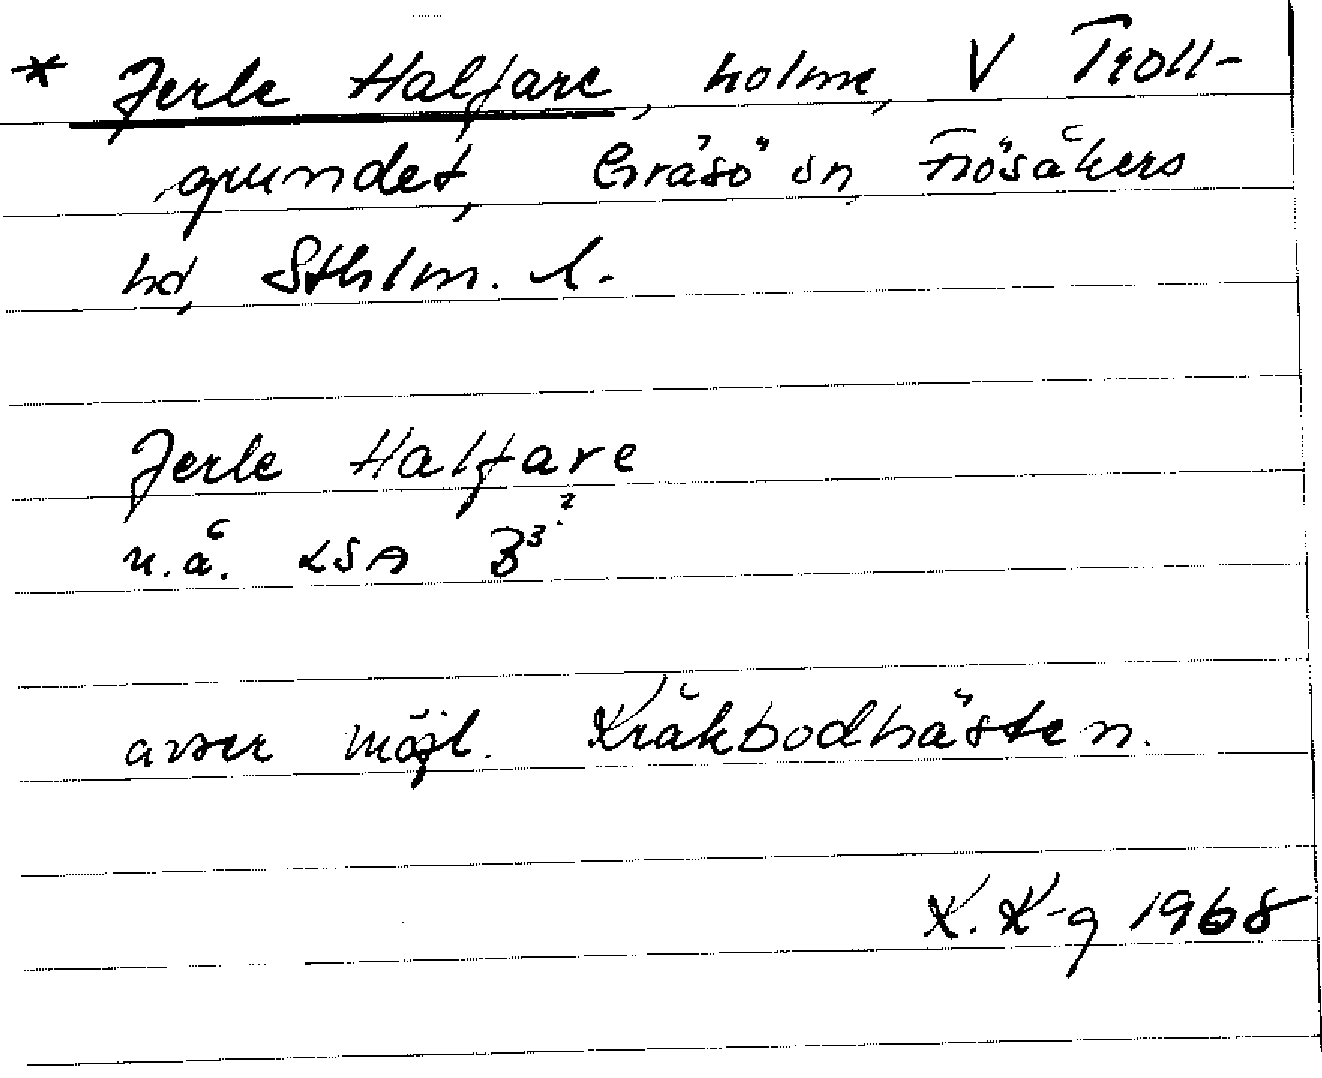 * Jerle Halfare, holme, V Troll-
grundet, Gräsö sn, Frösåkers
hd, Sthlm. l.
Jerle Halfare
u.å. LSA B³²
avser möjl. Kråkbodhästen.
K. K-g 1968